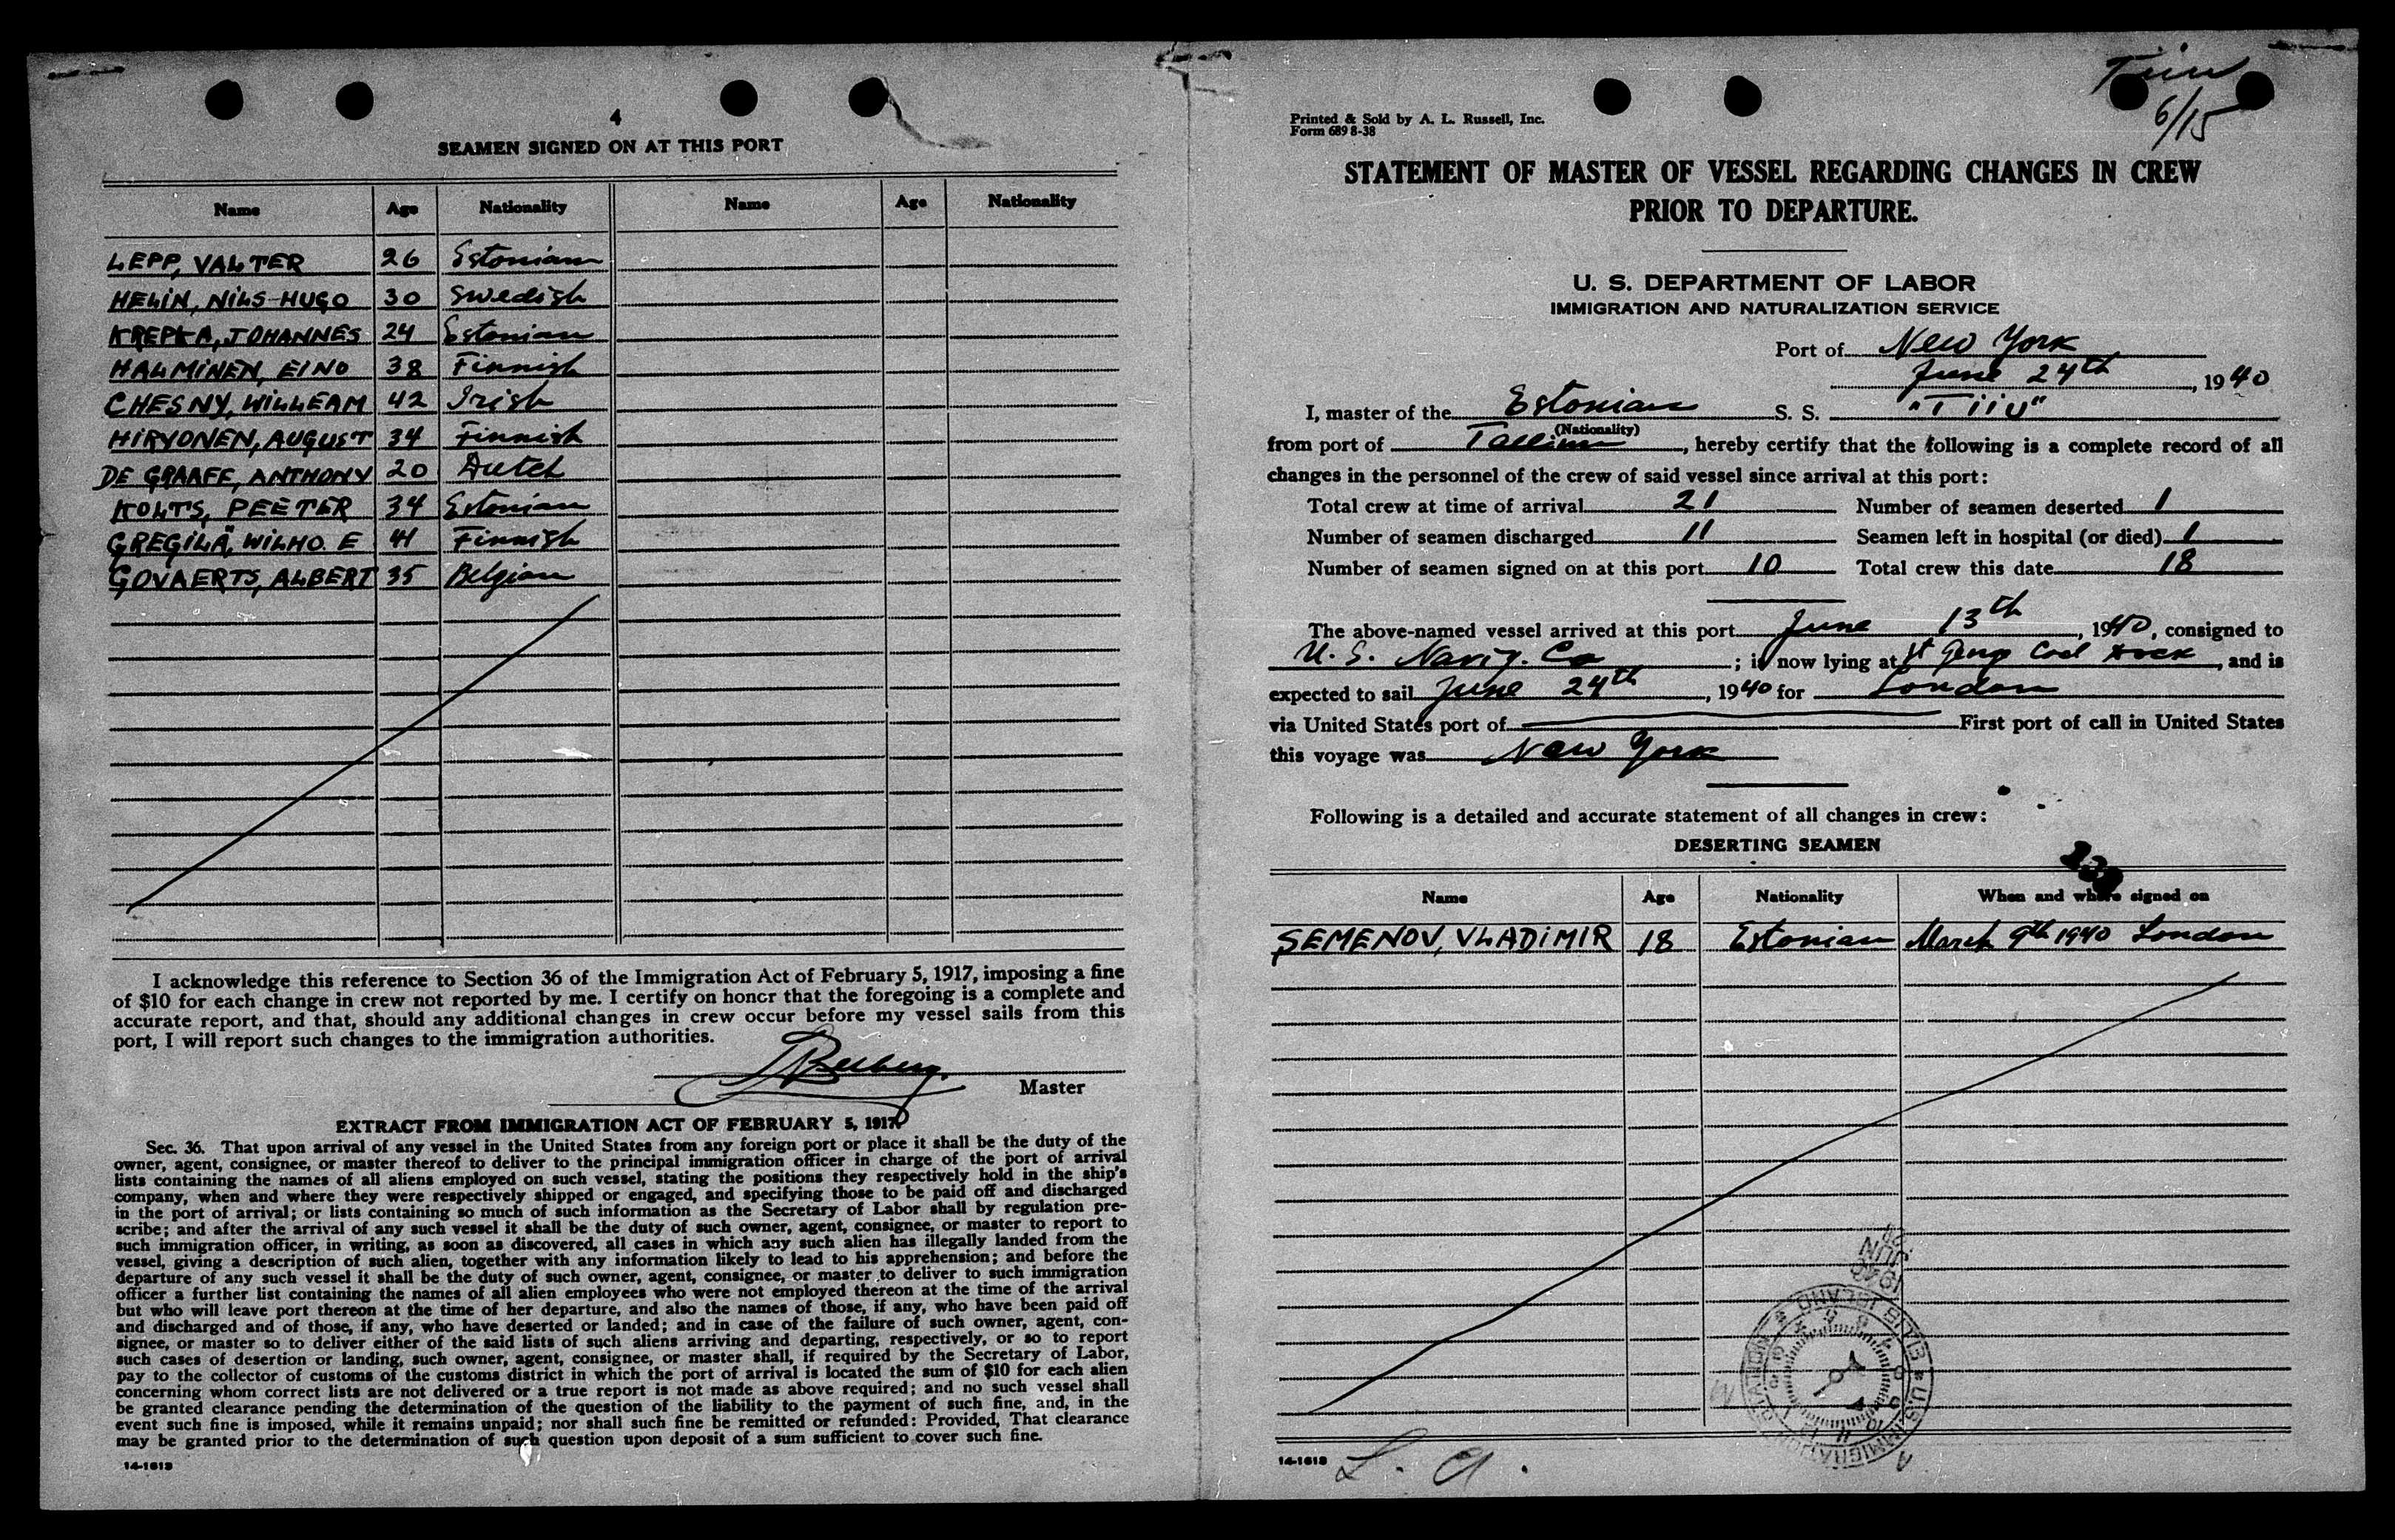 4
SEAMEN SIGNED ON AT THIS PORT
Name Age Nationality Name Age Nationality
LEPP, VALTER 26 Estonian
HELIN, NILS-HUGO 30 Swedish
KREPKA, JOHANNES 24 Estonian
HALMINEN, EINO 38 Finnish
CHESNY, WILLEAM 42 Irish
HIRVONEN, AUGUST 34 Finnish
DE GRAAFE, ANTHONY 20 Dutch
KOLTS, PEETER 34 Estonian
GREGILÄ, WILHO. E 41 Finnish
GOVAERTS, ALBERT 35 Belgian
I acknowledge this reference to Section 36 of the Immigration Act of February 5, 1917, imposing a fine
of $10 for each change in crew not reported by me. I certify on honor that the foregoing is a complete and
accurate report, and that, should any additional changes in crew occur before my vessel sails from this
port, I will report such changes to the immigration authorities.
Master
EXTRACT FROM IMMIGRATION ACT OF FEBRUARY 5, 1917
Sec. 36. That upon arrival of any vessel in the United States from any foreign port or place it shall be the duty of the
owner, agent, consignee, or master thereof to deliver to the principal immigration officer in charge of the port of arrival
lists containing the names of all aliens employed on such vessel, stating the positions they respectively hold in the ship's
company, when and where they were respectively shipped or engaged, and specifying those to be paid off and discharged
in the port of arrival; or lists containing so much of such information as the Secretary of Labor shall by regulation pre-
scribe; and after the arrival of any such vessel it shall be the duty of such owner, agent, consignee, or master to report to
such immigration officer, in writing, as soon as discovered, all cases in which any such alien has illegally landed from the
vessel, giving a description of such alien, together with any information likely to lead to his apprehension; and before the
departure of any such vessel it shall be the duty of such owner, agent, consignee, or master to deliver to such immigration
officer a further list containing the names of all alien employees who were not employed thereon at the time of the arrival
but who will leave port thereon at the time of her departure, and also the names of those, if any, who have been paid off
and discharged and of those, if any, who have deserted or landed; and in case of the failure of such owner, agent, con-
signee, or master so to deliver either of the said lists of such aliens arriving and departing, respectively, or so to report
such cases of desertion or landing, such owner, agent, consignee, or master shall, if required by the Secretary of Labor,
pay to the collector of customs of the customs district in which the port of arrival is located the sum of $10 for each alien
concerning whom correct lists are not delivered or a true report is not made as above required; and no such vessel shall
be granted clearance pending the determination of the question of the liability to the payment of such fine, and, in the
event such fine is imposed, while it remains unpaid; nor shall such fine be remitted or refunded: Provided, That clearance
may be granted prior to the determination of such question upon deposit of a sum sufficient to cover such fine.
14-1613
Tiiu
6/15
Printed & Sold by A. L. Russell, Inc.
Form 689 8-38
STATEMENT OF MASTER OF VESSEL REGARDING CHANGES IN CREW
PRIOR TO DEPARTURE.
U. S. DEPARTMENT OF LABOR
IMMIGRATION AND NATURALIZATION SERVICE
Port of New York
June 24th, 1940
I, master of the Estonian S. S. "Tiiu"
(Nationality)
from port of Tallinn, hereby certify that the following is a complete record of all
changes in the personnel of the crew of said vessel since arrival at this port:
Total crew at time of arrival 21 Number of seamen deserted 1
Number of seamen discharged 11 Seamen left in hospital (or died) 1
Number of seamen signed on at this port 10 Total crew this date 18
The above-named vessel arrived at this port June 13th, 1940, consigned to
U. S. Navig. Co; is now lying at St George Coal Dock, and is
expected to sail June 24th, 1940 for London
via United States port of First port of call in United States
this voyage was New York
Following is a detailed and accurate statement of all changes in crew:
DESERTING SEAMEN
Name Age Nationality When and where signed on
SEMENOV, VLADIMIR 18 Estonian March 9th 1940 London
14-1613